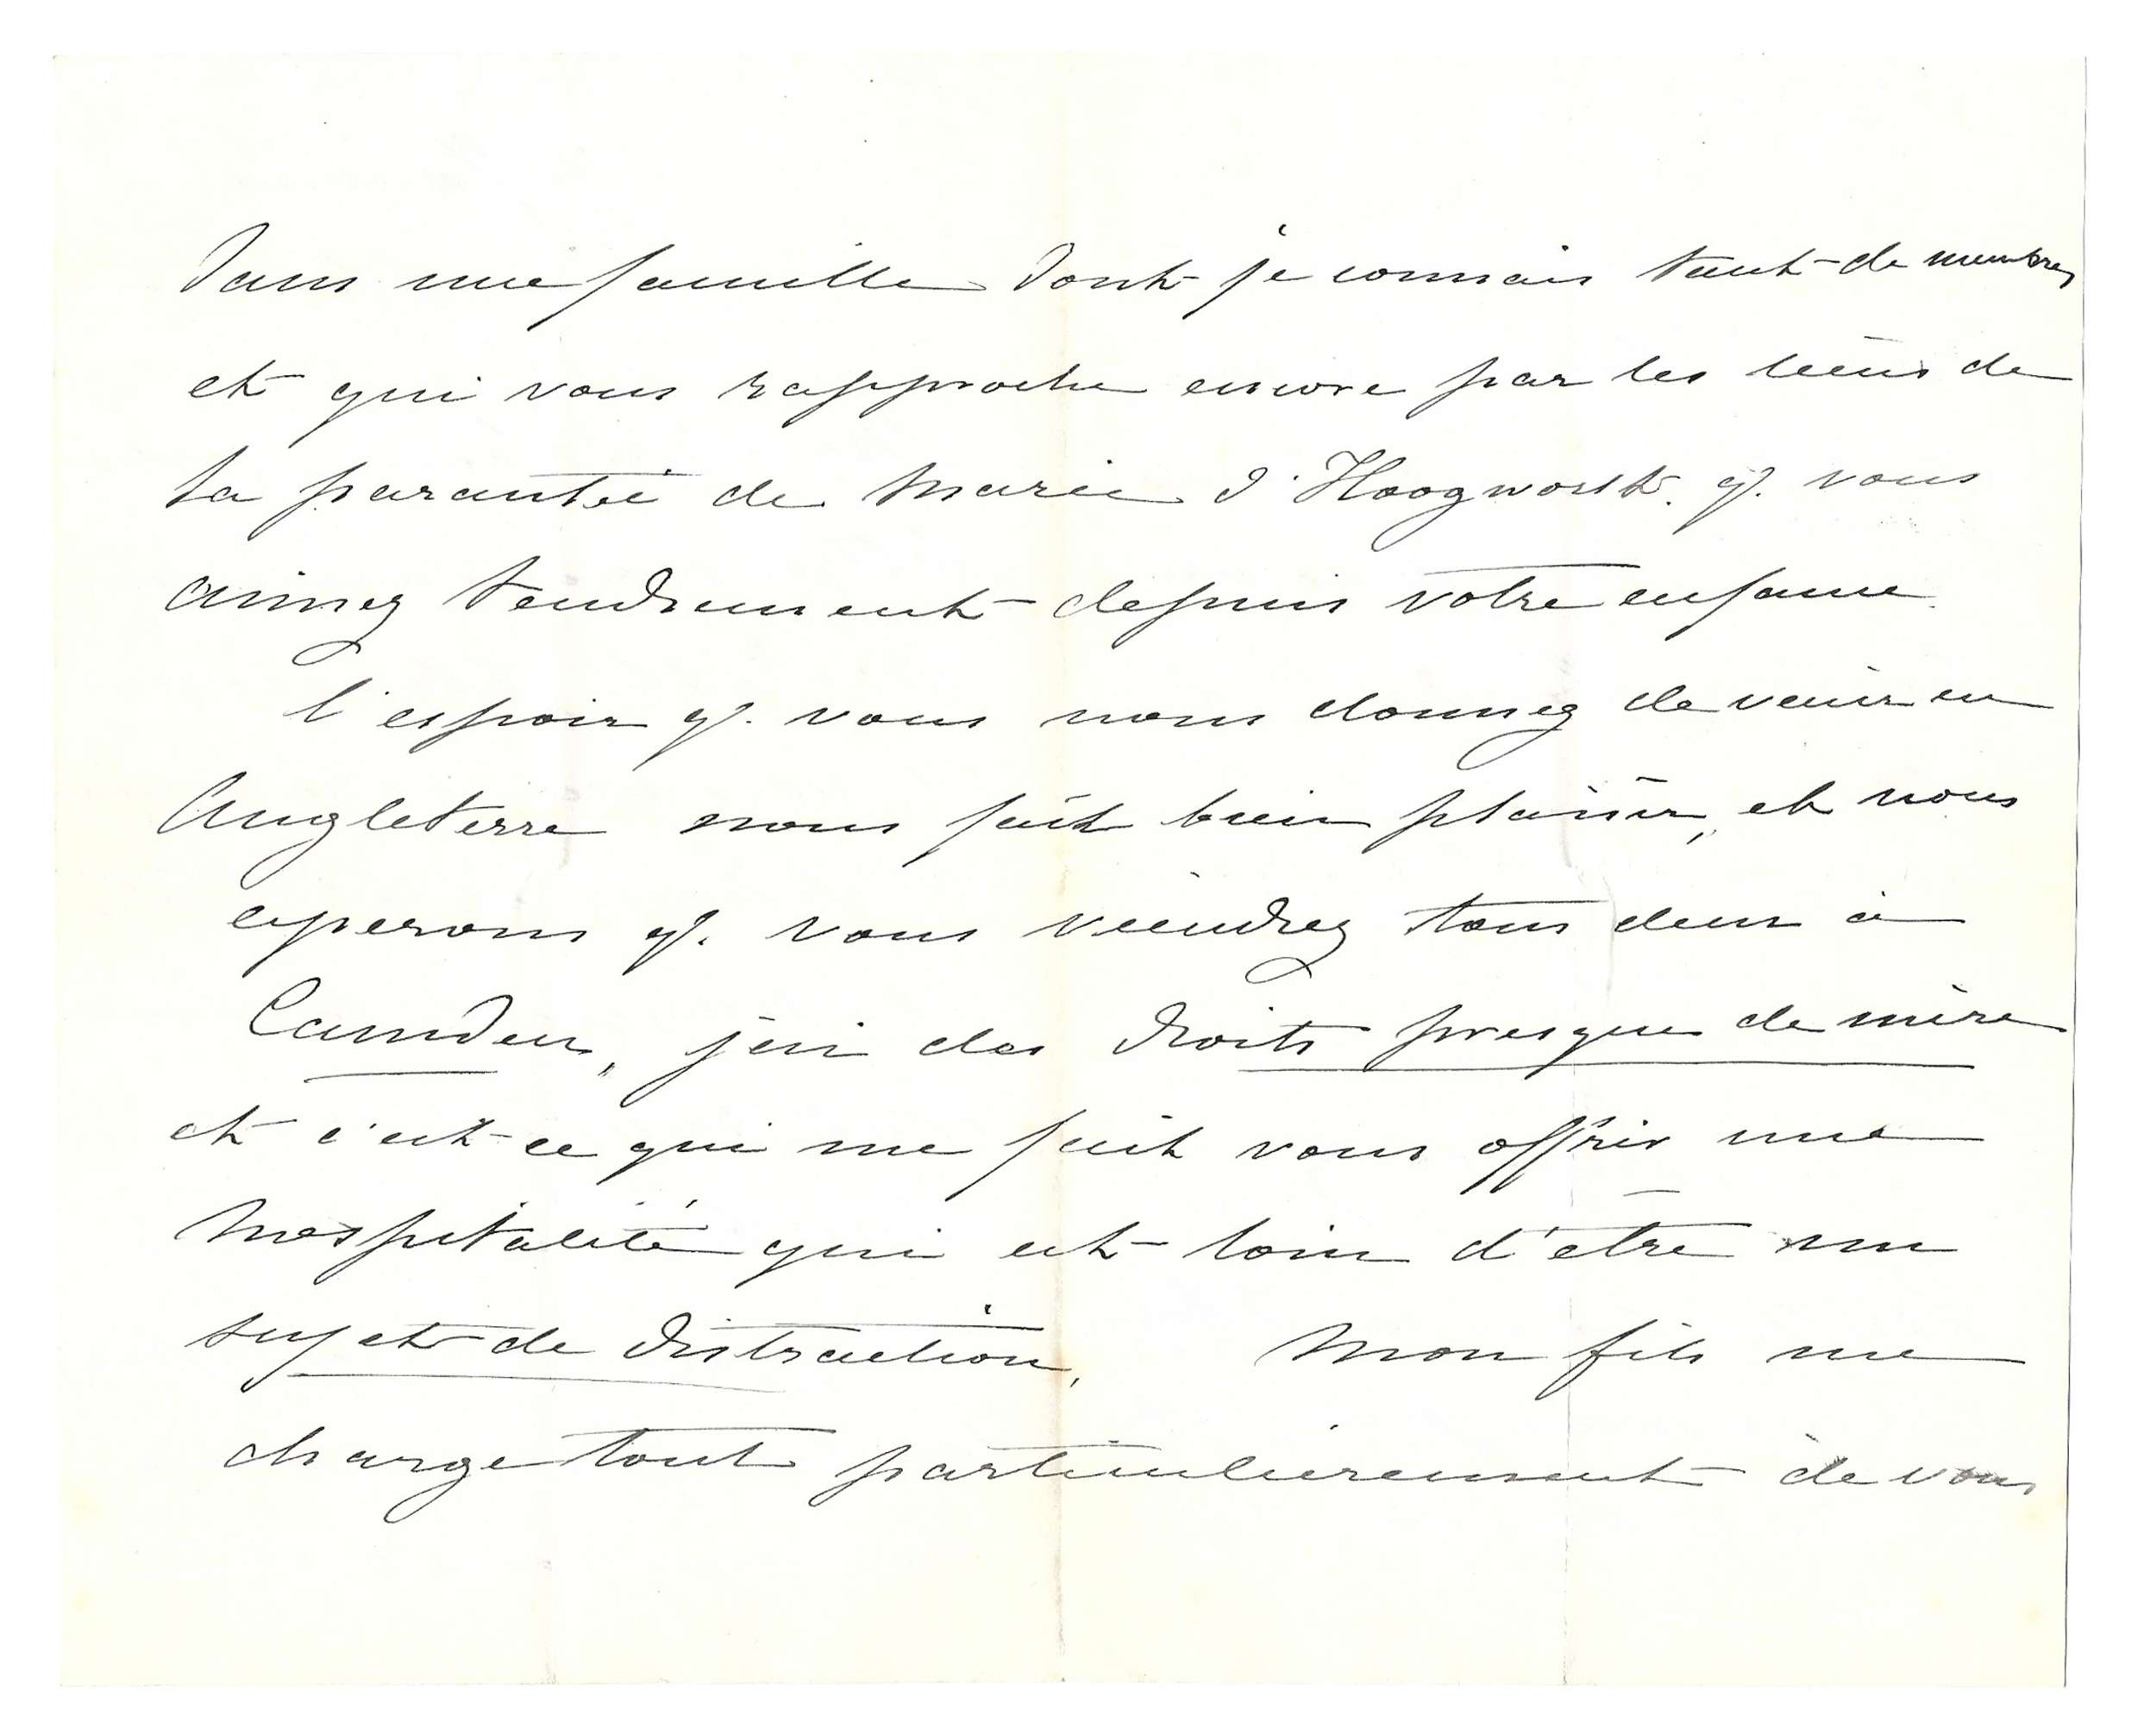 dans une famille dont je connais tant de membres
et qui vous rapproche encore par les liens de
la parantée de Marie d'Hoogworst. q. vous
aimez tendrement depuis votre enfance.
l'espoir q. vous nous donnez de venir en
Angleterre nous fait bien plaisir, et nous
esperons q. vous viendrez tous deux à
Camden, j'ai des droits presque de mère
et c'est ce qui me fait vous offrir une
hospitalité qui est loin d'être un
sujet de distraction, Mon fils me
charge tout particulièrement de vous